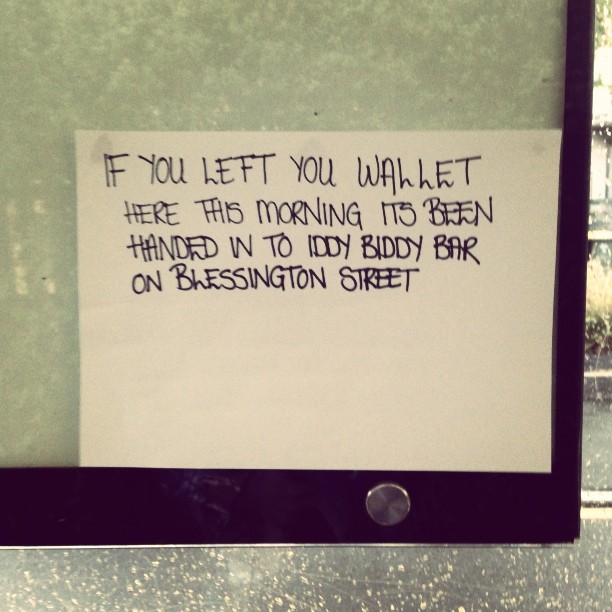 IF YOU LEFT YOU WALLET
HERE THIS MORNING ITS BEEN
HANDED IN TO IDDY BIDDY BAR
ON BLESSINGTON STREET